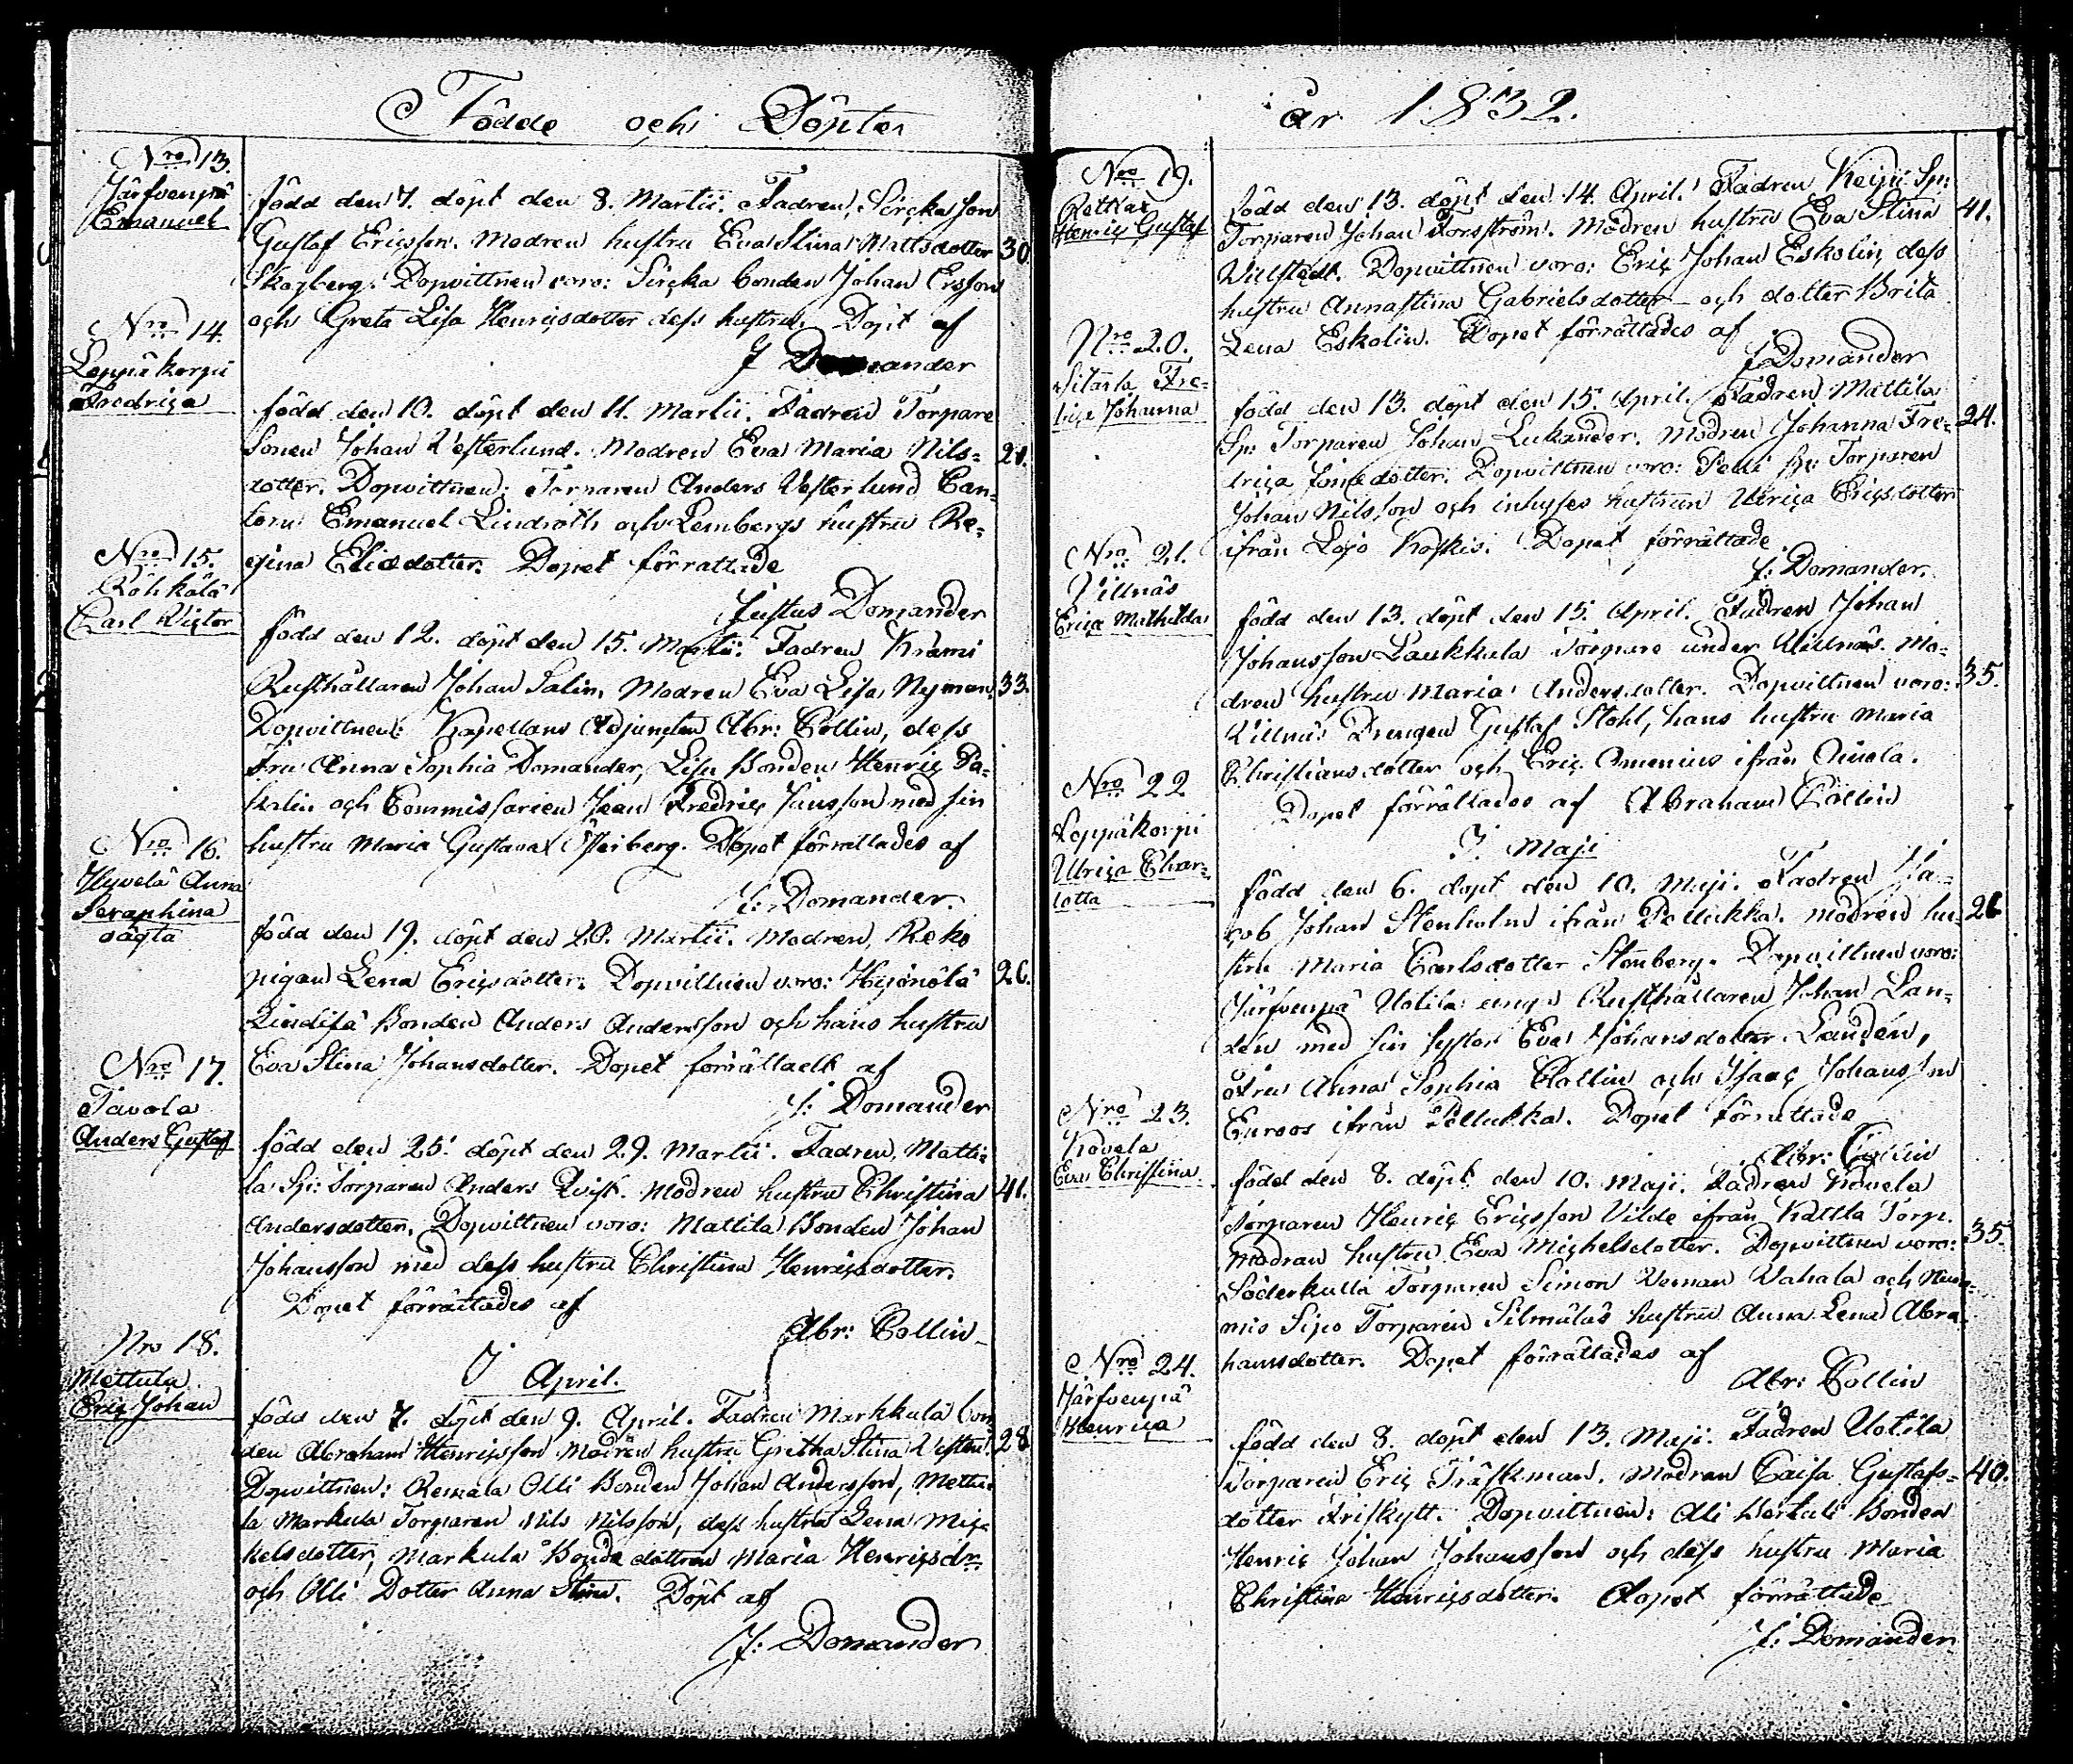 Födde och Döpter
Nro 13.
Järfvenpä
Emanuel
född den 7. döpt den 8. Martii. Fadren, Sircka Son
Gustaf Ericsson. Modren hustru Eva Stina Mattsdotter 30.
Skogberg. Dopvittnen voro: Sircka bonden Johan Ersson
och Greta Lisa Henricsdotter dess hustru. Döpt af
J Domander
Nro 14.
Leppäkorpi
Fredrica
född den 10. döpt den 11. Martii. Fadren Torpare
Sonen Johan Vesterlund. Modren Eva Maria Nils= 21.
dotter. Dopvittnen: Torparen Anders Vesterlund Can-
torn Emanuel Lindroth och Lembergs hustru Re-
gina Eliedotter. Dopet förrattade
Justus Domander
Nro 15.
Röhkälä
Carl Victor
född den 12. döpt den 15. Martii. Fadren Krämi
Rusthållaren Johan Salin. Modren Eva Lisa Nyman 33.
Dopvittnen: Kapellans Adjuncten Abr: Collin, dess
Fru Anna Sophia Domander, Lisu Bonden Henric Pa-
kalin och Commissarien Jean Fredric Jansson med sin
hustru Maria Gustava Österberg. Dopet förrattades af
J: Domander.
Nro 16.
Hyvelä Anna
Seraphina
oägta
född den 19. döpt den 20. Martii. Modren, Reko
pigan Lena Ericsdotter. Dopvittnen voro: Hyönölä 26.
Bonden Anders Andersson och hans hustru
Eva Stina Johansdotter. Dopet förrättadt af
J: Domander
Nro 17.
Tavola
Anders Gustaf
född den 25. döpt den 29. Martii. Fadren, Matti-
la Sp: Torparen Anders Qvist. Modren hustru Christina 41.
Andersdotter. Dopvittnen voro: Mattila Bonden Johan
Johansson med dess hustru Christina Henricsdotter.
Dopet förrättades af
Abr: Collin
I April.
Nro 18.
Mettula
Eric Johan
född den 7. döpt den 9. April. Fadren Markkula bon
den Abraham Henricsson Modren hustru Gretha Stina 28
Dopvittnen: Remala Olli Bonden Johan Andersson, Mettu-
la Markula Torparen Nils Nilsson, dess hustru Lena Mic-
helsdotter, Markula Bonde dottren Maria Henricsdr
och Olli Dotter Anna Stina. Döpt af
J: Domander
år 1832.
Nro 19.
Rettlax
Henric Gustaf
född den 13. döpt den 14. April. Fadren Keipi Sp:
Torparen Johan Forsström. Modren hustru Eva Stina 41.
Villstedt. Dopvittnen voro: Eric Johan Eskolin, dess
hustru Annastina Gabrielsdotter och dotter Brita
Lena Eskolin. Dopet förrättades af
J Domander
Nro 20.
Sitarla Fre-
Johanna
född den 13. döpt den 15. April. Fadren Mattila
Sp: Torparen Johan Lukander. Modren Johanna Fre- 24.
drica dotter. Dopvittnen voro: Torparen
Johan Nilsson och inhyses hustrun Ulrica Ericsdotter
ifrån Lojo Koskis. Dopet förrättade
J: Domander.
Nro 21.
Villnäs
Erica Mathilda
född den 13. döpt den 15. April. Fadren Johan
Johansson Laukkula Torpare under Villnäs. Mo-
dren hustru Maria Andersdotter. Dopvittnen voro: 35.
Villnäs Drengen Gustaf Stohl, hans hustru Maria
Christiansdotter och Eric Omenius ifrån Ojnola.
Dopet förrättades af Abraham Collin
I Maji
Nro 22
Leppäkorpi
Ulrica Char-
lotta
född den 6. döpt den 10. Maji. Fadren Ja-
cob Johan Stenholm ifrån Pellukka. Modren hu- 26
stru Maria Carlsdotter Stenberg. Dopvittnen voro:
Järfvenpä Uotila unge Rusthållaren Johan Lan-
dén med sin syster Eva Johansdotter Landén,
Fru Anna Sophia Collin och Isaac Johansson
Enroos ifrån Pellukka. Dopet förrattade
Abr: Collin
Nro 23.
Kovela
Eva Christina
född den 8. döpt den 10. Maji. Fadren Kovela
Torparen Henric Ericsson Vilde ifrån Kattla Torp.
Modran hustru Eva Michelsdotter. Dopvittnen voro: 35.
Söderkulla Torparen Simon Veman Vahala och Num-
mis Sipo Torparen Silmäläs hustru Anna Lena Abra
hamsdotter. Dopet förrättades af
Abr: Collin
Nro 24.
Järfvenpä
Henrica
född den 8. döpt den 13. Maji. Fadren Uotila
Torparen Eric Träskman. Modran Caisa Gustafs- 40.
dotter Friskytt. Dopvittnen: Olli Bonden
Henric Johan Johansson och dess hustru Maria
Christina Henricsdotter. Dopet förrättade
J: Domander